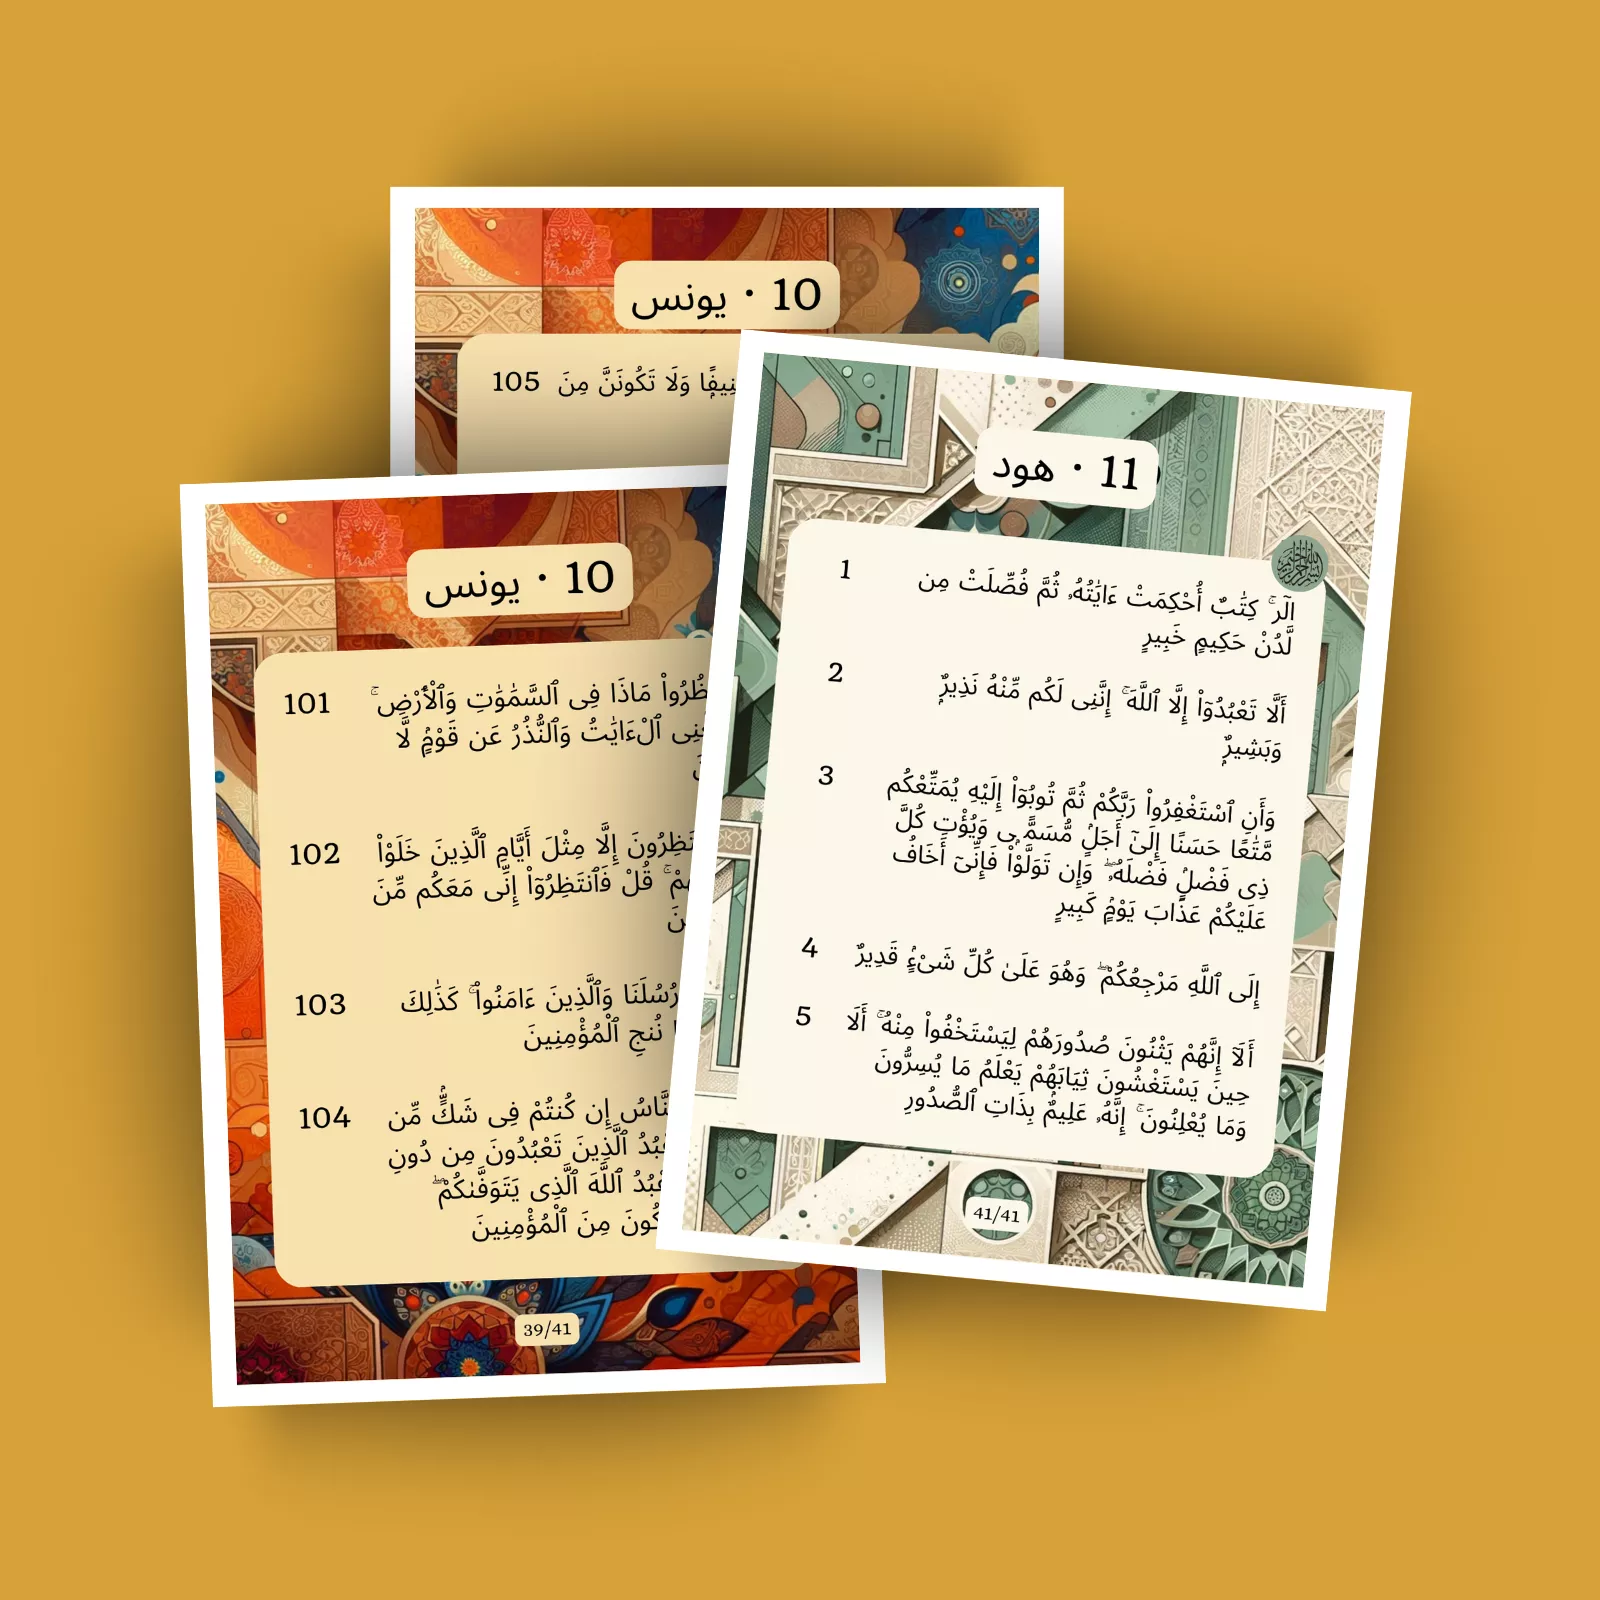 10 · يونس
105 وَلَا تَكُونَنَّ مِنَ
10 · يونس
101 مَاذَا فِى ٱلسَّمَٰوَٰتِ وَٱلْأَرْضِ ۚ
ٱلْءَايَٰتُ وَٱلنُّذُرُ عَن قَوْمٍۢ لَّا
102 إِلَّا مِثْلَ أَيَّامِ ٱلَّذِينَ خَلَوْا۟
قُلْ فَٱنتَظِرُوٓا۟ إِنِّى مَعَكُم مِّنَ
103 رُسُلَنَا وَٱلَّذِينَ ءَامَنُوا۟ ۚ كَذَٰلِكَ
نُنجِ ٱلْمُؤْمِنِينَ
104 إِن كُنتُمْ فِى شَكٍّۢ مِّن
ٱلَّذِينَ تَعْبُدُونَ مِن دُونِ
ٱللَّهَ ٱلَّذِى يَتَوَفَّىٰكُمْ ۖ
مِنَ ٱلْمُؤْمِنِينَ
39/41
11 · هود
1 الٓر ۚ كِتَٰبٌ أُحْكِمَتْ ءَايَٰتُهُۥ ثُمَّ فُصِّلَتْ مِن
لَّدُنْ حَكِيمٍ خَبِيرٍ
2 أَلَّا تَعْبُدُوٓا۟ إِلَّا ٱللَّهَ ۚ إِنَّنِى لَكُم مِّنْهُ نَذِيرٌۭ
وَبَشِيرٌۭ
3 وَأَنِ ٱسْتَغْفِرُوا۟ رَبَّكُمْ ثُمَّ تُوبُوٓا۟ إِلَيْهِ يُمَتِّعْكُم
مَّتَٰعًا حَسَنًا إِلَىٰٓ أَجَلٍۢ مُّسَمًّۭى وَيُؤْتِ كُلَّ
ذِى فَضْلٍۢ فَضْلَهُۥ ۖ وَإِن تَوَلَّوْا۟ فَإِنِّىٓ أَخَافُ
عَلَيْكُمْ عَذَابَ يَوْمٍۢ كَبِيرٍ
4 إِلَى ٱللَّهِ مَرْجِعُكُمْ ۖ وَهُوَ عَلَىٰ كُلِّ شَىْءٍۢ قَدِيرٌ
5 أَلَآ إِنَّهُمْ يَثْنُونَ صُدُورَهُمْ لِيَسْتَخْفُوا۟ مِنْهُ ۚ أَلَا
حِينَ يَسْتَغْشُونَ ثِيَابَهُمْ يَعْلَمُ مَا يُسِرُّونَ
وَمَا يُعْلِنُونَ ۚ إِنَّهُۥ عَلِيمٌۢ بِذَاتِ ٱلصُّدُورِ
41/41